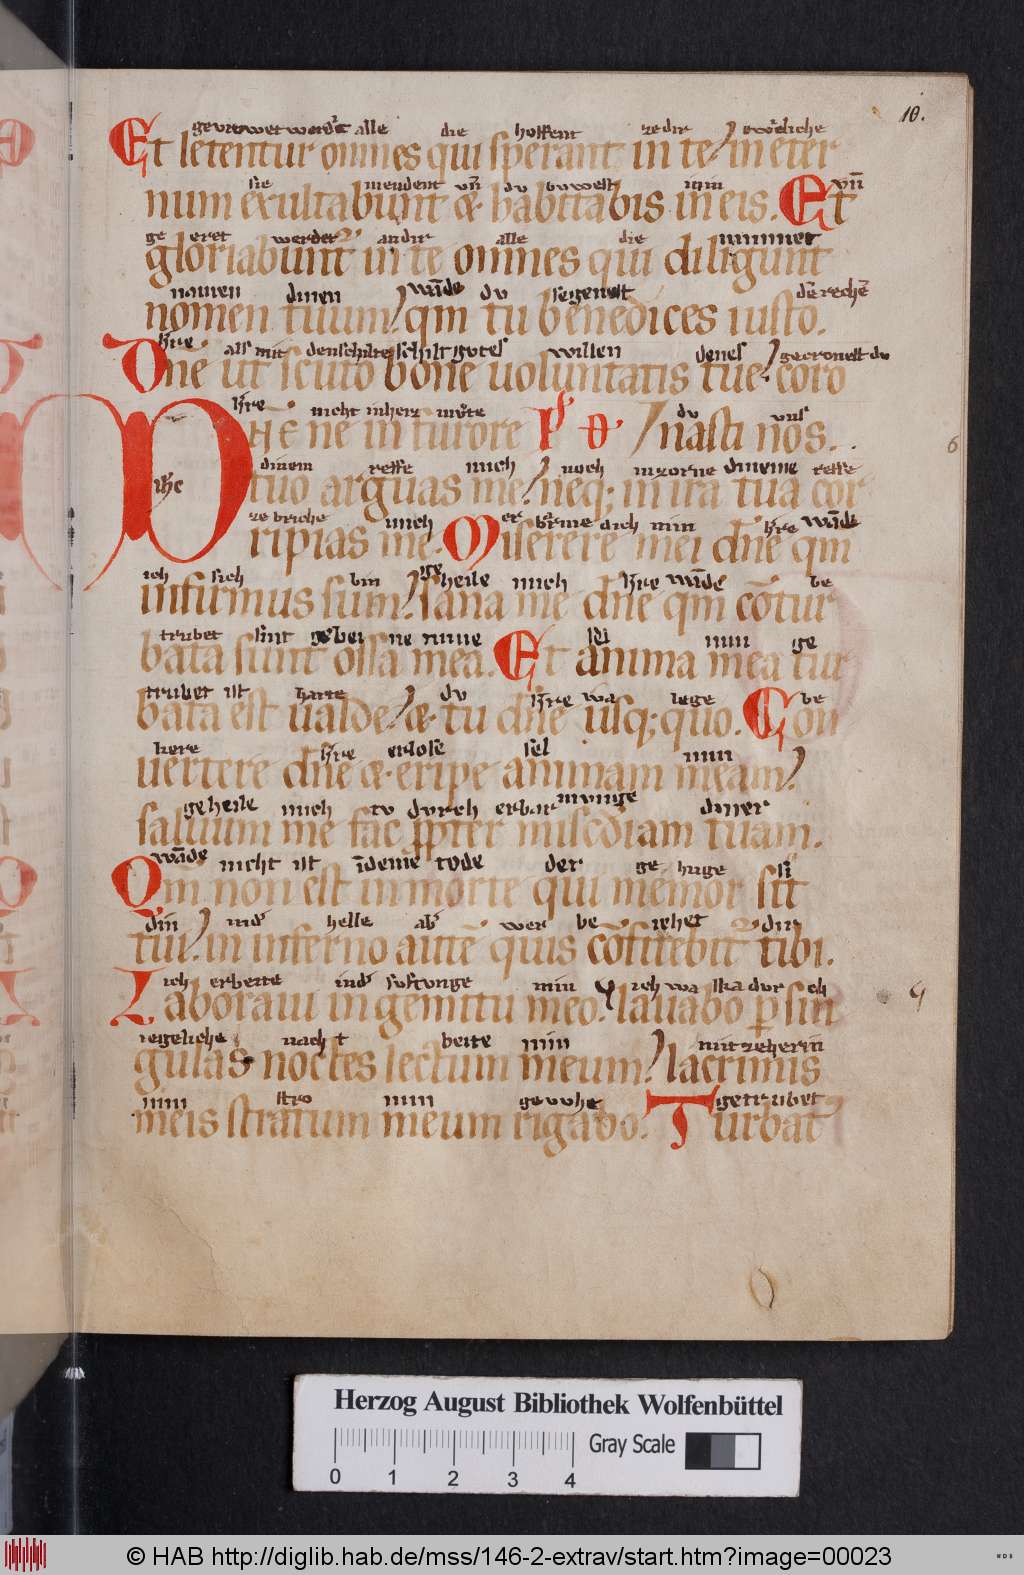 10.
gevrewet werdēt alle die hoffent ze dir ewecliche
Et letentur omnes qui sperant in te / in eter
sie mendent vn̄ du buwest inin vn̄
num exultabunt & habitabis in eis. Et
ge eret werdet andir alle die minnet
gloriabunt in te omnes qui diligunt
namen dinen wāde du segenest
nomen tuum / qm tu benedices iusto.
h're als mit denschilte schilt gotes willen denes gecronest du
Dn̄e ut scuto bone uoluntatis tue / coro
h're nicht inherz
DNE ne in furore Ps D /nasti nos.
du vns
6
ih̄c
dinem reffe mich noch inzorne dineme reffe
tuo arguas me / neq; in ira tua cor
ze briche mich er bārme dich min h're wāde
ripias me. Miserere mei dn̄e qm
ich sich bin ge heile mich h're wāde be
infirmus sum / sana me dn̄e qm cōtur
trubet sint gebei ne mine min ge
bata sunt ossa mea. Et anima mea tur
trubet ist harte du h're was lege be
bata est ualde / & tu dn̄e usq; quo. Con
kere h're erlose sel min
uertere dn̄e & eripe animam meam /
geheile mich tv dvrch erbar munge diner
saluum me fac ꝓpter miscdiam tuam.
wāde nicht ist īdeme tode der ge huge si
Qm non est in morte qui memor sit
din ind' helle ab' wer be iehet dir
tui / in inferno autē quis cōfitebit' tibi.
ich erbeite ind' suftunge min ich wa ska dur ch
Laboraui in gemitu meo / lauabo ꝑ sin
iegeliche nach t beite min mit zeherin
gulas noctes lectum meum / lacrimis
min stro min getrubet
meis stratum meum rigabo. Turbat'
Herzog August Bibliothek Wolfenbüttel
Gray Scale
0 1 2 3 4
© HAB http://diglib.hab.de/mss/146-2-extrav/start.htm?image=00023